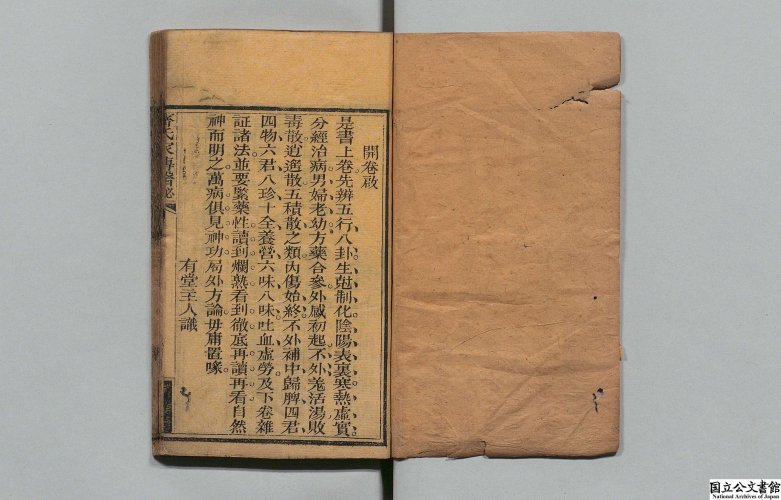 開卷啟
是書上卷先辨五行八卦生尅制化陰陽表裏寒熱虛實
分經治病男婦老幼方藥合參外感初起不外羗活湯敗
毒散逍遙散五積散之類內傷始終不外補中歸脾四君
四物六君八珍十全養營六味八味吐血虛勞及下卷雜
証諸法並要緊藥性讀到爛熟看到徹底再讀再看自然
神而明之萬病俱見神功局外方論毋庸置喙
有堂主人識
齊氏家傳醫秘
国立公文書館
National Archives of Japan